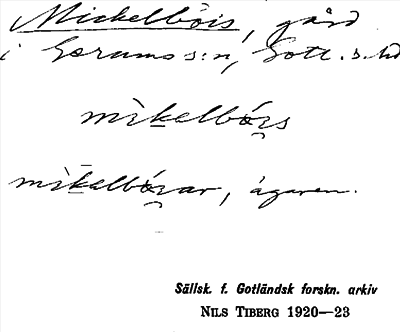 Mickelbòis, gård
i Gerums s:n, Gotl. s. hd
mìkelbórs
mìkelbórar, ägaren.
Sällsk. f. Gotländsk forskn. arkiv
NILS TIBERG 1920—23